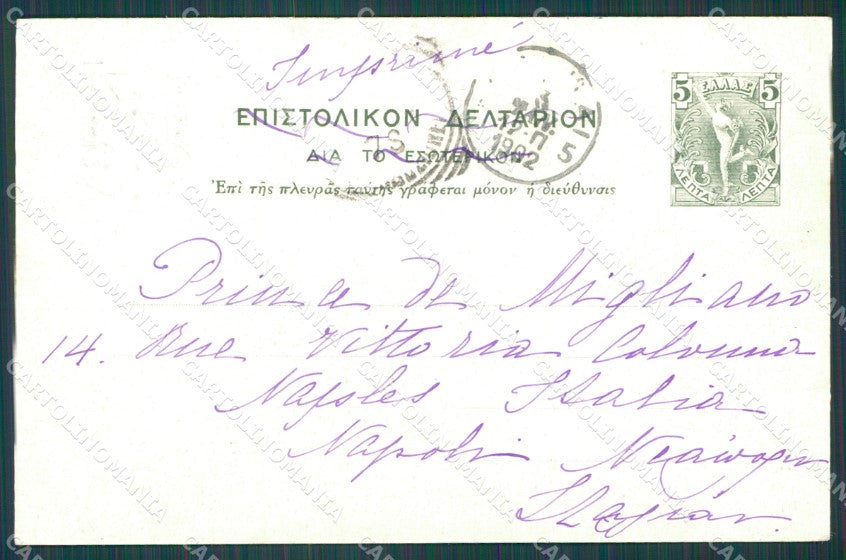 Imprimé
ΕΛΛΑΣ
5 5
ΛΕΠΤΑ ΛΕΠΤΑ
ΕΠΙΣΤΟΛΙΚΟΝ ΔΕΛΤΑΡΙΟΝ
ΔΙΑ ΤΟ ΕΣΩΤΕΡΙΚΟΝ
Ἐπὶ τῆς πλευρᾶς ταύτης γράφεται μόνον ἡ διεύθυνσις
1902
5
Prince de Migliano
14. Rue Vittoria Colonna
Naples Italia
Napoli Νεάπολιν
Ἰταλίαν.
CARTOLINOMANIA